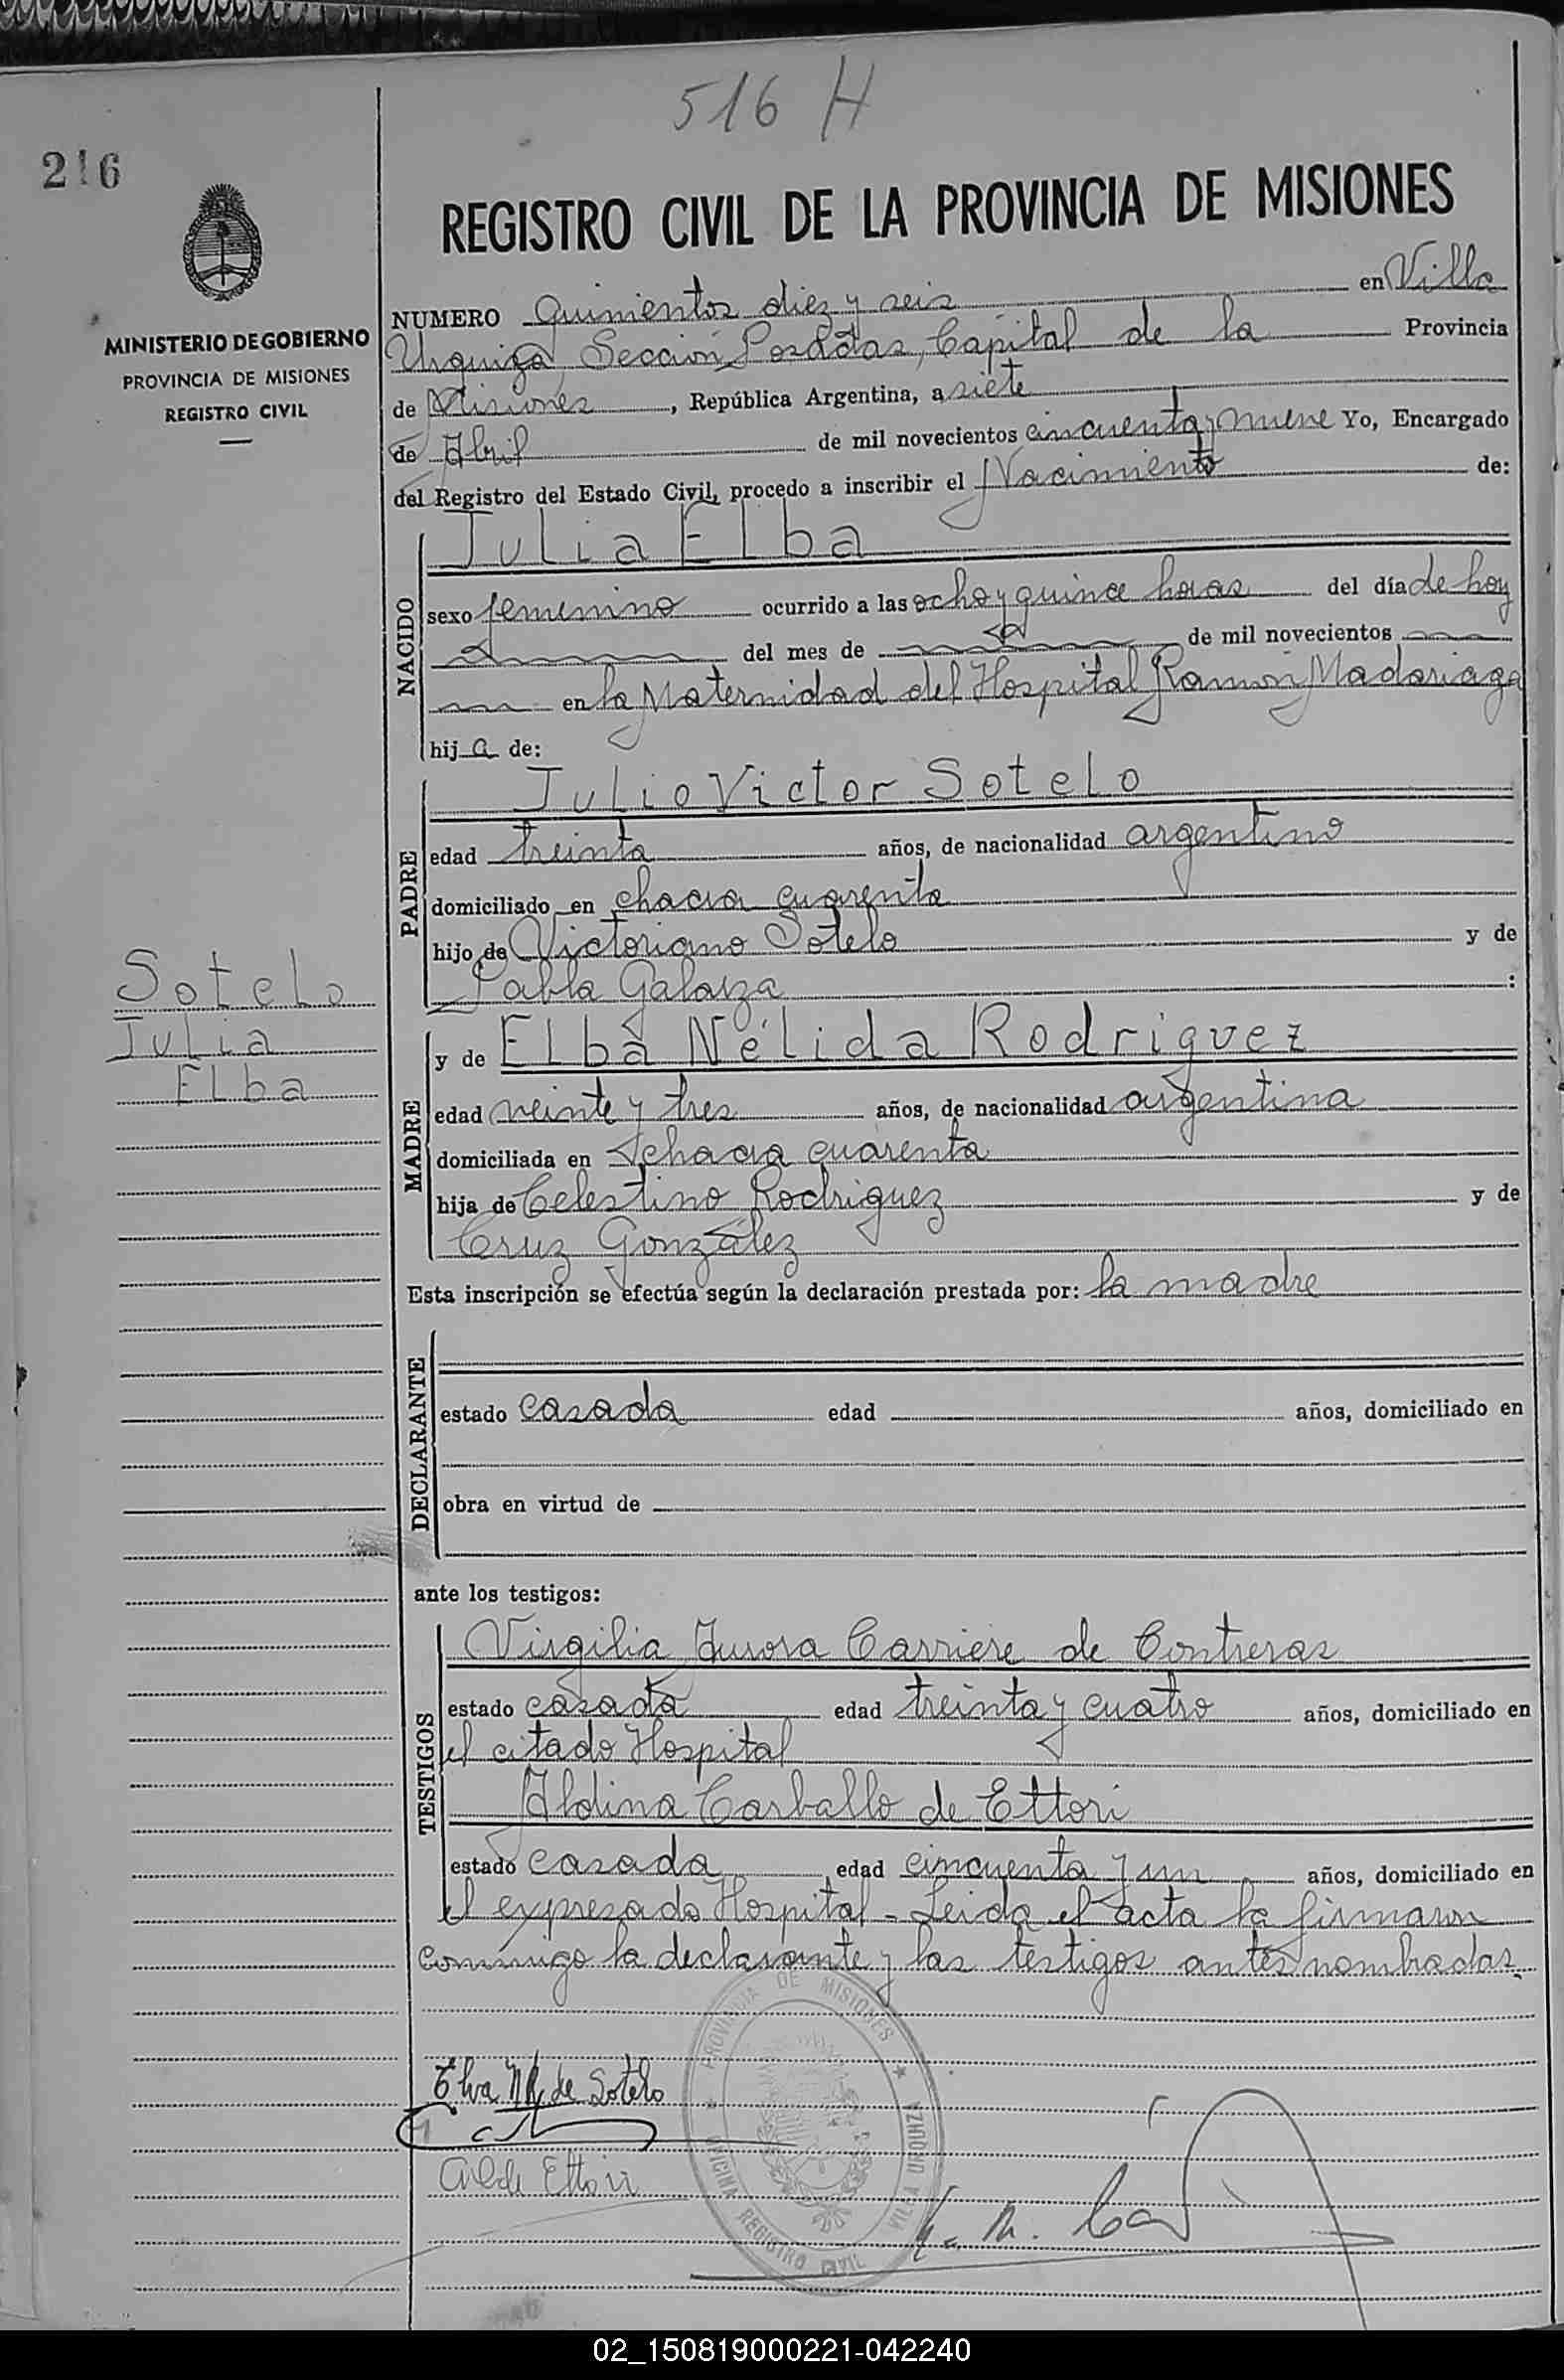 516 H
216
REGISTRO CIVIL DE LA PROVINCIA DE MISIONES
MINISTERIO DE GOBIERNO
PROVINCIA DE MISIONES
REGISTRO CIVIL
NUMERO Quinientos diez y seis en Villa
Urquiza Sección Posadas, Capital de la Provincia
de Misiones, República Argentina, a siete
de Abril de mil novecientos cincuenta y nueve Yo, Encargado
del Registro del Estado Civil, procedo a inscribir el Nacimiento de:
NACIDO
Julia Elba
sexo femenino ocurrido a las ocho y quince horas del día de hoy
del mes de de mil novecientos
en la Maternidad del Hospital Ramón Madariaga
hija de:
PADRE
Julio Victor Sotelo
edad treinta años, de nacionalidad argentino
domiciliado en chacra cuarenta
hijo de Victoriano Sotelo y de
Pabla Galarza :
Sotelo
Julia
Elba
MADRE
y de Elba Nélida Rodriguez
edad veinte y tres años, de nacionalidad argentina
domiciliada en chacra cuarenta
hija de Celestino Rodriguez y de
Cruz González
Esta inscripción se efectúa según la declaración prestada por: la madre
DECLARANTE
estado casada edad años, domiciliado en
obra en virtud de
ante los testigos:
TESTIGOS
Virgilia Aurora Carriere de Contreras
estado casada edad treinta y cuatro años, domiciliado en
el citado Hospital
Aldina Carballo de Ettori
estado casada edad cincuenta y un años, domiciliado en
el expresado Hospital - Leida el acta la firmaron
conmigo la declarante y las testigos antes nombradas.
Elva N R de Sotelo
de Ettori
PROVINCIA DE MISIONES
OFICINA REGISTRO CIVIL VILLA URQUIZA
02_150819000221-042240